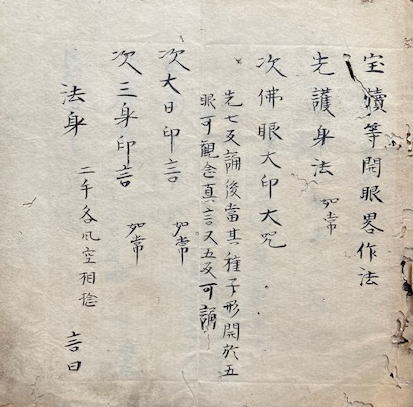 宝等開眼畧作法
先護身法 如常
次佛眼大印大咒
先七反誦後當其種子形開於五
眼可觀念真言又五反可誦
次大日印言 如常
次三身印言 如常
法身 二手各風空相捻 言曰